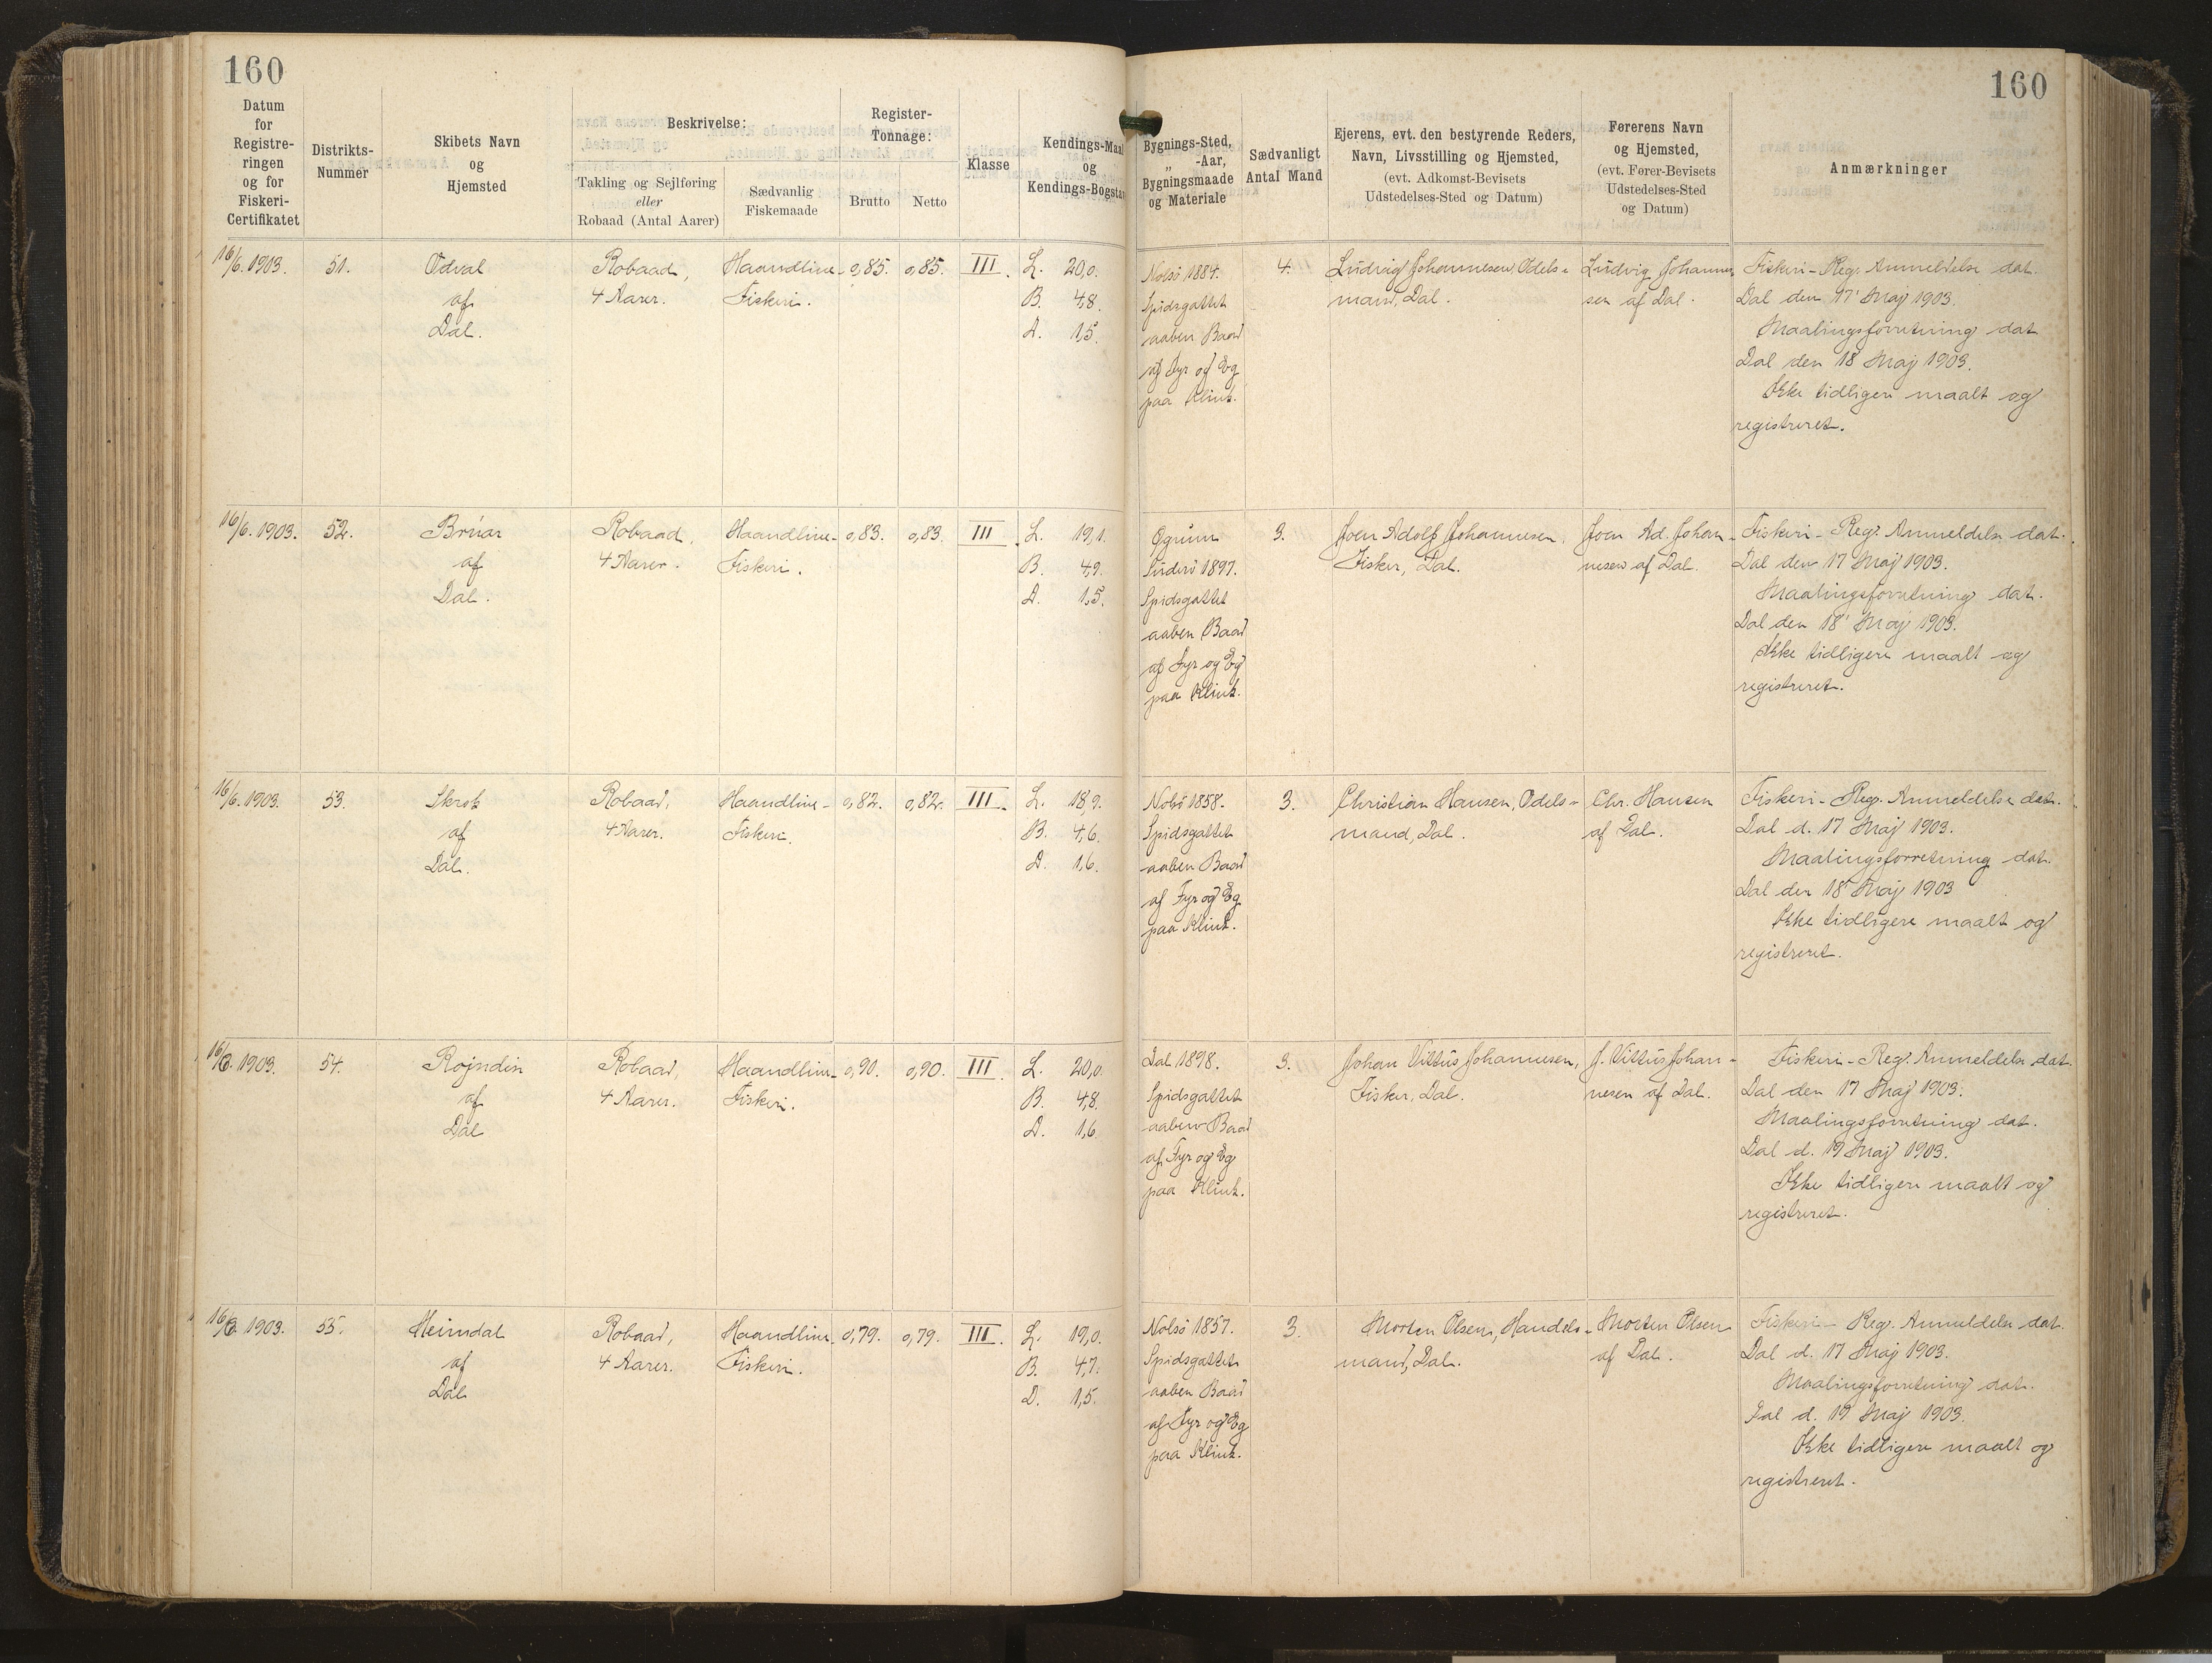 160
160
Datum
for
Registre-
ringen
og for
Fiskeri-
Certifikatet
Distrikts-
Nummer
Skibets Navn
og
Hjemsted
Beskrivelse:
Takling og Sejlføring
eller
Robaad (Antal Aarer)
Sædvanlig
Fiskemaade
Register-
Tonnage:
Brutto
Netto
Klasse
Kendings-Maal
og
Kendings-Bogstav
Bygnings-Sted,
„ -Aar,
Bygningsmaade
og Materiale
Sædvanligt
Antal Mand
Ejerens, evt. den bestyrende Reders,
Navn, Livsstilling og Hjemsted,
(evt. Adkomst-Bevisets
Udstedelses-Sted og Datum)
Førerens Navn
og Hjemsted,
(evt. Fører-Bevisets
Udstedelses-Sted
og Datum)
Anmærkninger
16/6. 1903.
51.
Odval
af
Dal.
Robaad,
4 Aarer.
Haandline-
Fiskeri.
0,85.
0,85.
III.
L. 20,0.
B. 4,8.
D. 1,5.
Nolsö 1884.
Spidsgattet
aaben Baad
af Fyr og Eg
paa Klink.
4.
Ludvig Johannesen, Odels-
mand, Dal.
Ludvig Johannes
sen af Dal.
Fiskeri-Reg. Anmeldelse dat.
Dal den 17' Maj 1903.
Maalingsforretning dat.
Dal den 18 Maj 1903.
Ikke tidligere maalt og
registreret.
16/6. 1903.
52.
Brúar
af
Dal.
Robaad,
4 Aarer.
Haandline-
Fiskeri.
0,83.
0,83.
III.
L. 19,1.
B. 4,9.
D. 1,5.
Suderö 1897.
Spidsgattet
aaben Baad
af Fyr og Eg
paa Klink.
3.
Joen Adolf Johannesen,
Fisker, Dal.
Joen Ad. Johan-
nesen af Dal.
Fiskeri-Reg. Anmeldelse dat.
Dal den 17 Maj 1903.
Maalingsforretning dat.
Dal den 18' Maj 1903.
Ikke tidligere maalt og
registreret.
16/6. 1903.
53.
Skrok
af
Dal.
Robaad,
4 Aarer.
Haandline-
Fiskeri.
0,82.
0,82.
III.
L. 18,9.
B. 4,6.
D. 1,6.
Nolsö 1858.
Spidsgattet
aaben Baad
af Fyr og Eg
paa Klink.
3.
Christian Hansen, Odels-
mand, Dal.
Chr. Hansen
af Dal.
Fiskeri-Reg. Anmeldelse dat.
Dal d. 17 Maj 1903.
Maalingsforretning dat.
Dal den 18 Maj 1903
Ikke tidligere maalt og
registreret.
16/6. 1903.
54.
Rojndin
af
Dal
Robaad,
4 Aarer.
Haandline-
Fiskeri.
0,90.
0,90.
III.
L. 20,0.
B. 4,8.
D. 1,6.
Dal 1898.
Spidsgattet
aaben Baad
af Fyr og Eg
paa Klink.
3.
Johan Vittus Johannesen,
Fisker, Dal.
J. Vittus Johan-
nesen af Dal.
Fiskeri-Reg. Anmeldelse dat.
Dal den 17 Maj 1903.
Maalingsforretning dat.
Dal d. 19 Maj 1903.
Ikke tidligere maalt og
registreret.
16/6. 1903.
55.
Heimdal
af
Dal
Robaad,
4 Aarer.
Haandline-
Fiskeri.
0,79.
0,79.
III.
L. 19,0.
B. 4,7.
D. 1,5.
Nolsö 1857.
Spidsgattet
aaben Baad
af Fyr og Eg
paa Klink.
3.
Morten Olsen, Handels-
mand, Dal.
Morten Olsen
af Dal.
Fiskeri-Reg. Anmeldelse dat.
Dal d. 17 Maj 1903.
Maalingsforretning dat.
Dal d. 19 Maj 1903.
Ikke tidligere maalt og
registreret.